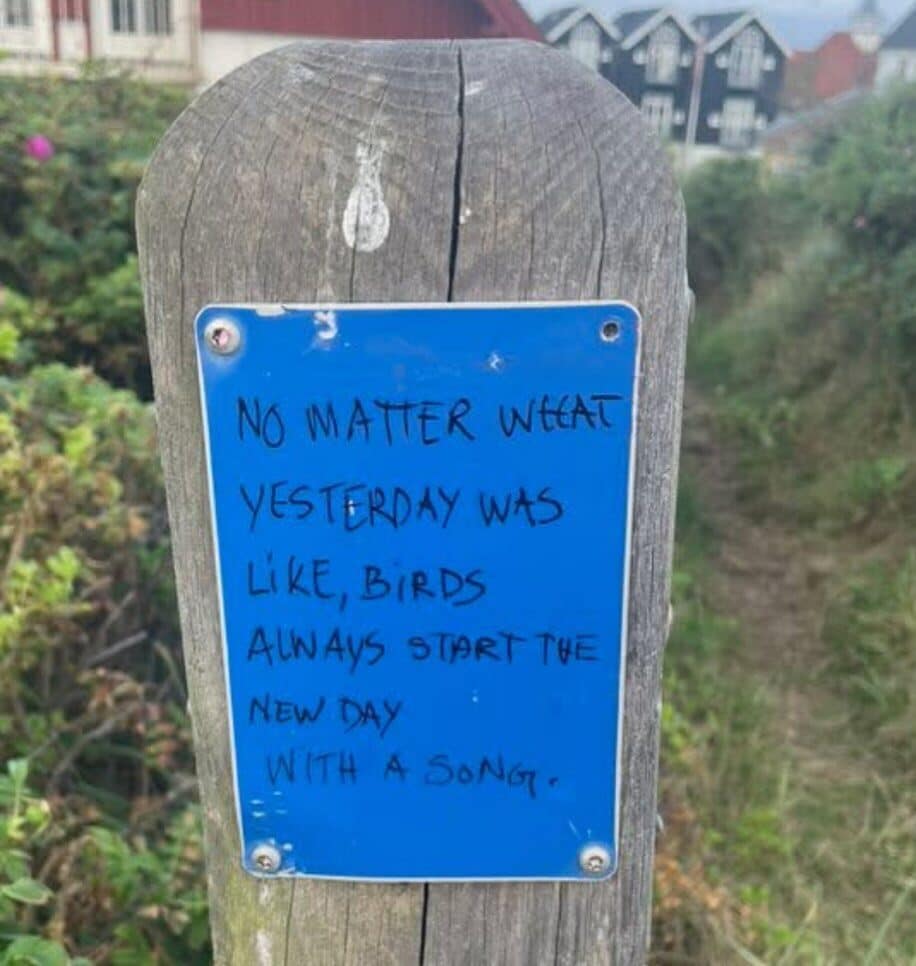 NO MATTER WHAT
YESTERDAY WAS
LIKE, BIRDS
ALWAYS START THE
NEW DAY
WITH A SONG.